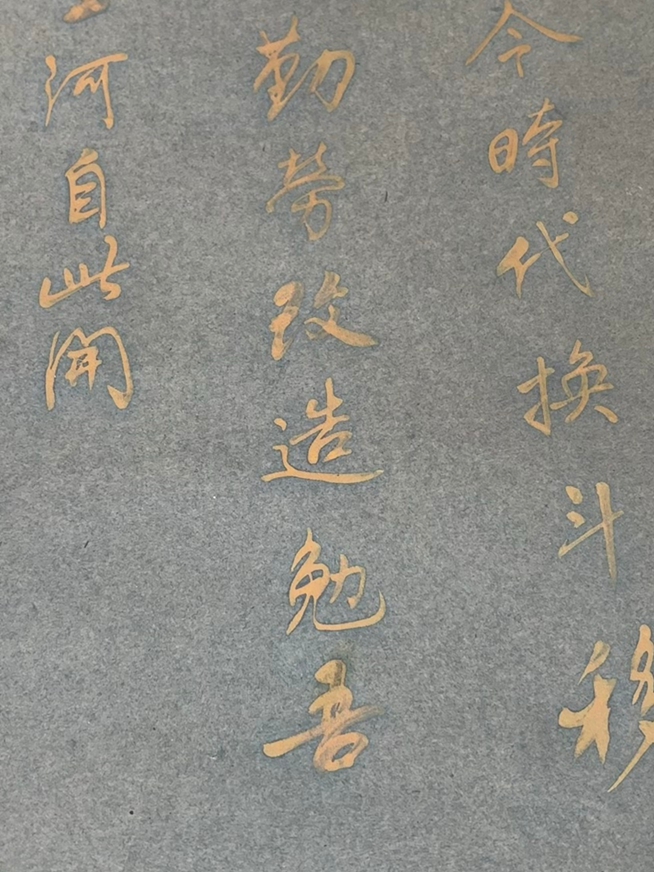 今時代換斗移
勤勞改造勉吾
河自此開